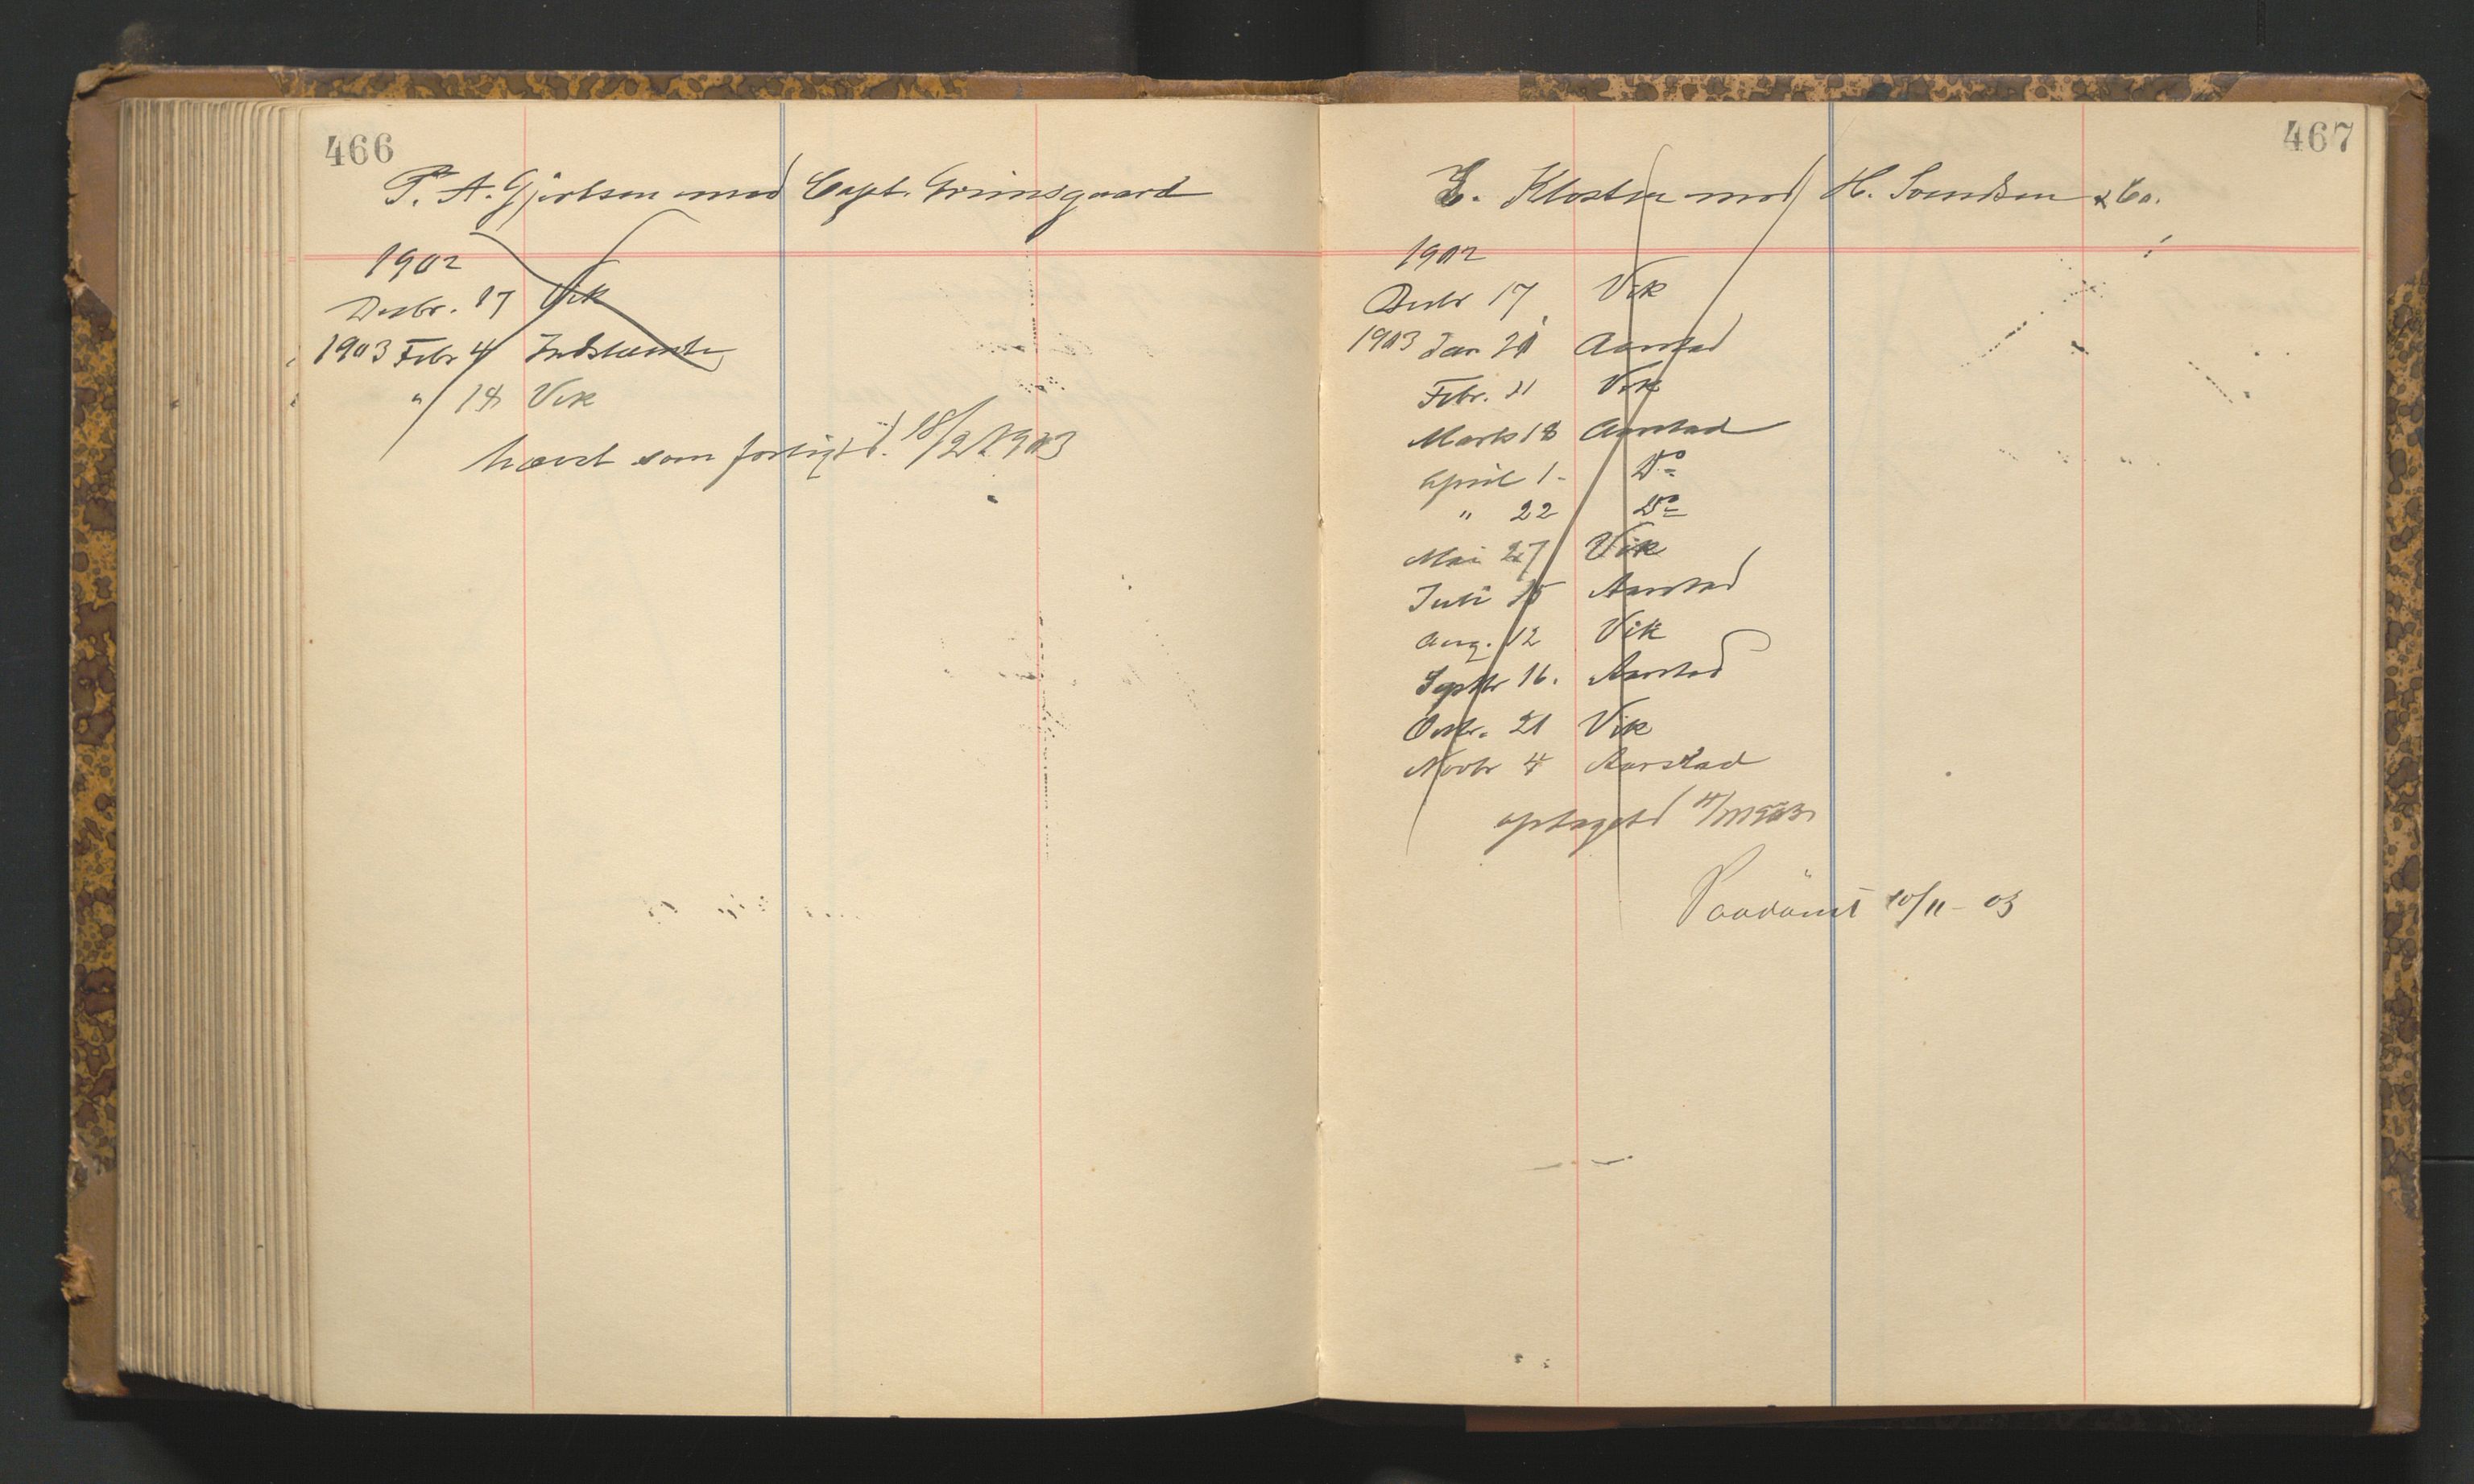 466
P. A. Gjertsen mod Capt. Grimsgaard
1902
Decbr. 17 Vik
1903 Febr 4 Indstævnte
" 18 Vik
hævet som forligt d. 18/2 1903
467
E. Kloster mod H. Svendsen & Co.
1902
Decbr 17 Vik
1903 Jan 21 Aarstad
Febr. 11 Vik
Marts 18 Aarstad
April 1. Do
" 22 Do
Mai 27 Vik
Juli 15 Aarstad
Aug. 12 Vik
Septbr 16. Aarstad
Octbr. 21 Vik
Novbr 4 Aarstad
optaget d 4/11 1903
Paadömt 10/11 - 03